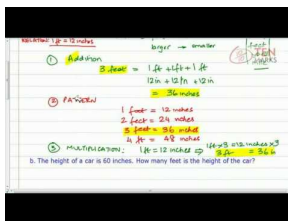 RELATION: 1 ft = 12 inches
larger → smaller
① Addition
3 feet = 1 ft + 1 ft + 1 ft
12 in + 12 in + 12 in
= 36 inches
② PATTERN
1 foot = 12 inches
2 feet = 24 inches
3 feet = 36 inches
4 ft = 48 inches
③ MULTIPLICATION: 1 ft = 12 inches ⇒ 1 ft × 3 = 12 inches × 3
3 ft = 36
b. The height of a car is 60 inches. How many feet is the height of the car?